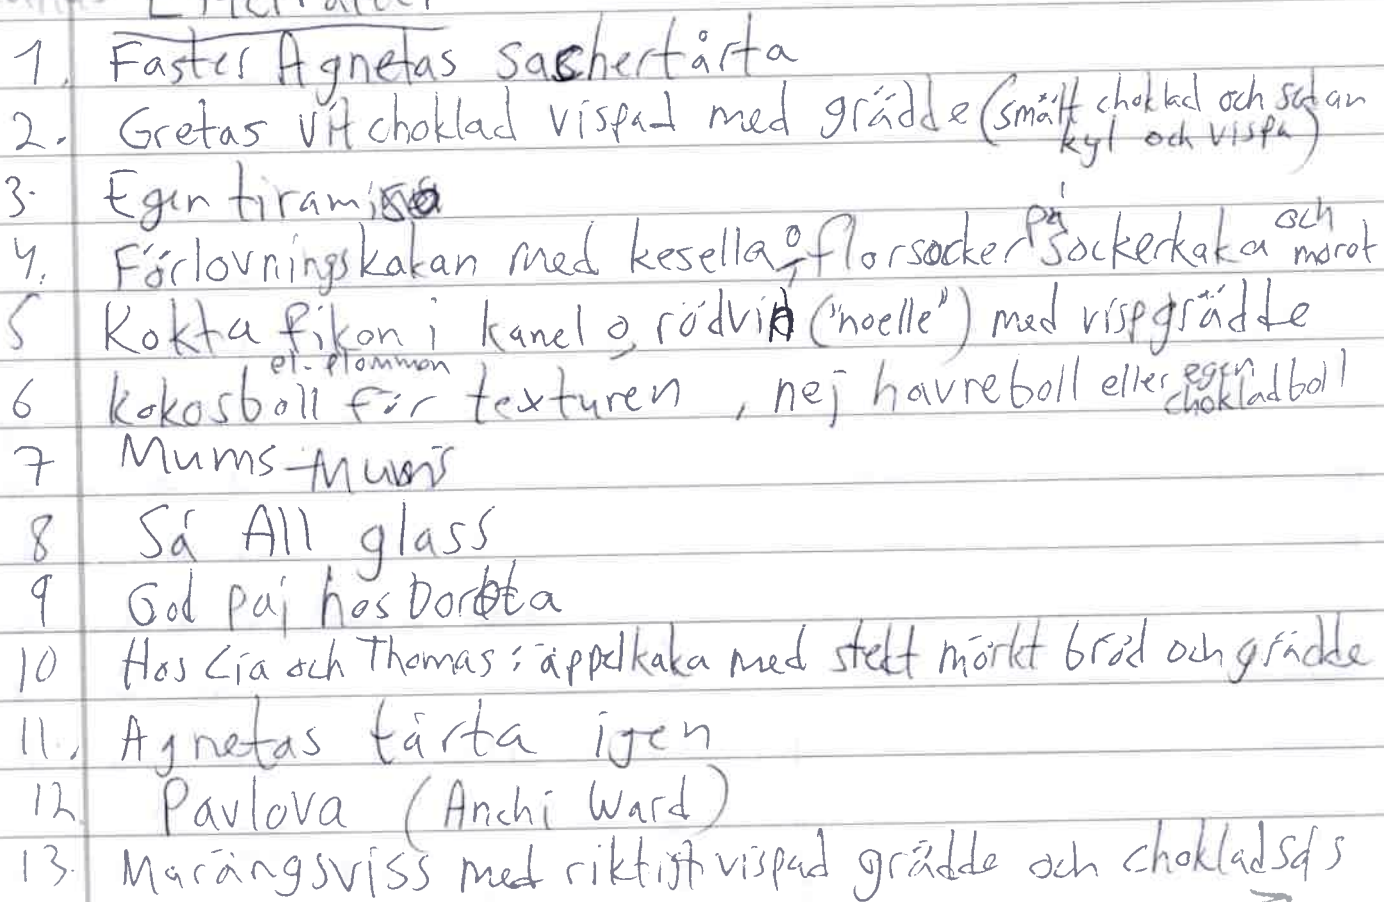 Efterrätter
1. Faster Agnetas sachertårta
2. Gretas vit choklad vispad med grädde (smält choklad och sedan
kyl och vispa)
3. Egen tiramisu
4. Förlovningskakan med kesella o florsocker på sockerkaka och morot
5 Kokta fikon i kanel o rödvin ("noelle") med vispgrädde
el. plommon
6 kokosboll för texturen, nej havreboll eller egen chokladboll
7 Mums-Mums
8 Så All glass
9 God paj hos Dorota
10 Hos Lia och Thomas: äppelkaka med stekt mörkt bröd och grädde
11. Agnetas tårta igen
12. Pavlova (Anchi Ward)
13. Marängsviss med riktigt vispad grädde och chokladsås